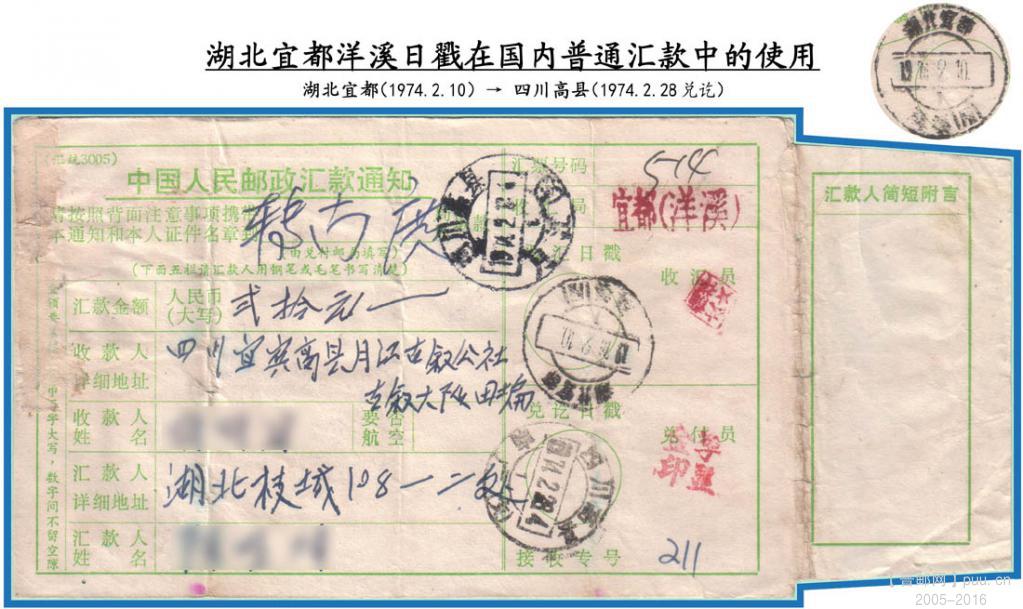 湖北宜都洋溪日戳在国内普通汇款中的使用
湖北宜都(1974.2.10) → 四川高县(1974.2.28兑讫)
湖北宜都
(汇统3005)
中国人民邮政汇款通知
请按照背面注意事项携带
本通知和本人证件名章到
(由兑付邮局填写)
(下面五栏请汇款人用钢笔或毛笔书写清楚)
汇款金额
人民币
(大写)
贰拾元
收款人
详细地址
四川宜宾高县月江古叙公社
古叙大队
收款人
姓名
要否
航空
汇款人
详细地址
湖北枝城108一二处
汇款人
姓名
大写,数字间不留空隙
汇票号码
514
宜都(洋溪)
日戳
收汇员
湖北宜都
兑讫日戳
兑付员
四川
1974.2.28
接收专号
211
汇款人简短附言
puu.cn
2005-2016